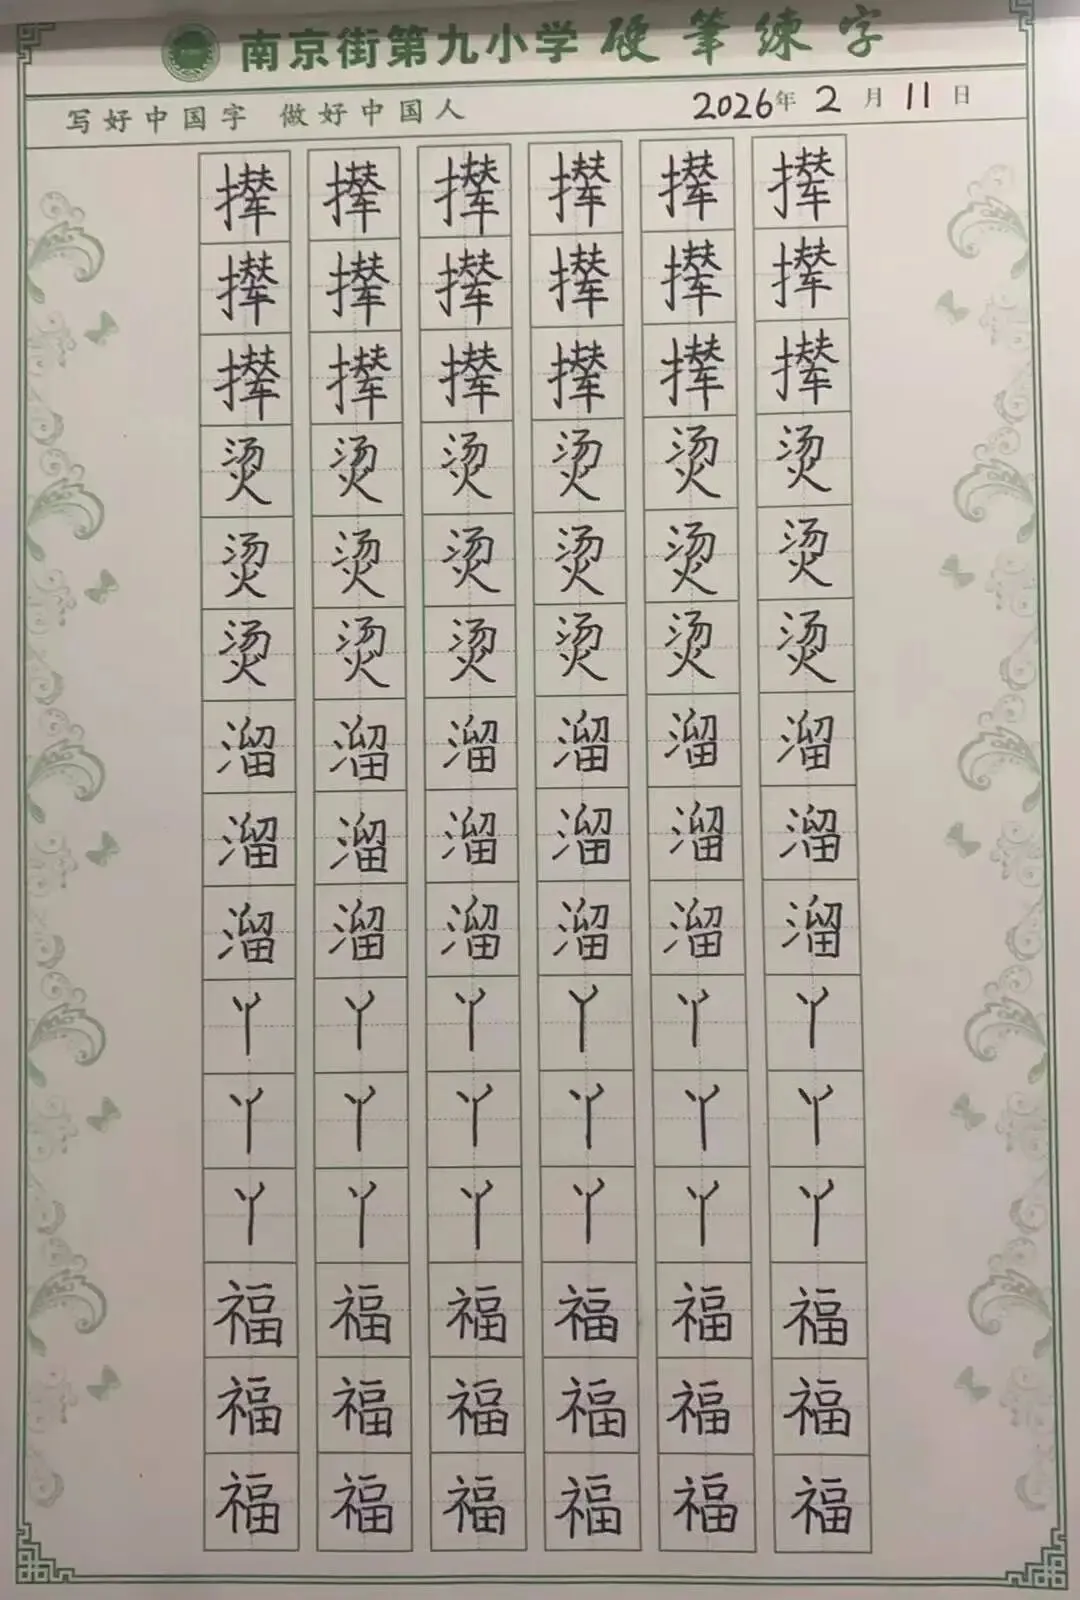 南京街第九小学 硬笔练字
写好中国字 做好中国人 2026年 2月 11日
撵 撵 撵 撵 撵 撵
撵 撵 撵 撵 撵 撵
撵 撵 撵 撵 撵 撵
烫 烫 烫 烫 烫 烫
烫 烫 烫 烫 烫 烫
烫 烫 烫 烫 烫 烫
溜 溜 溜 溜 溜 溜
溜 溜 溜 溜 溜 溜
溜 溜 溜 溜 溜 溜
丫 丫 丫 丫 丫 丫
丫 丫 丫 丫 丫 丫
丫 丫 丫 丫 丫 丫
福 福 福 福 福 福
福 福 福 福 福 福
福 福 福 福 福 福